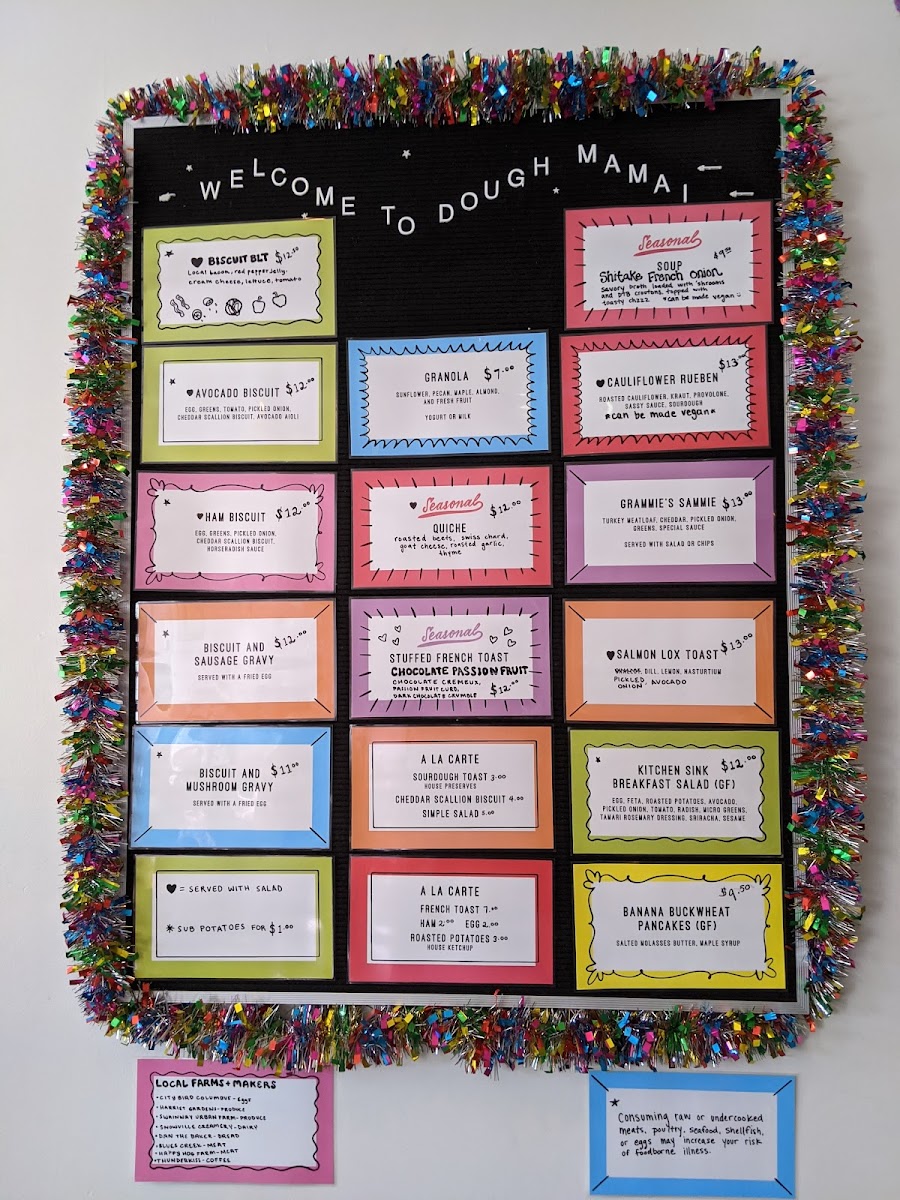 WELCOME TO DOUGH MAMA!
♥ BISCUIT BLT $12.50
Local bacon, red pepper jelly,
cream cheese, lettuce, tomato
★
♥AVOCADO BISCUIT $12.00
EGG, GREENS, TOMATO, PICKLED ONION,
CHEDDAR SCALLION BISCUIT, AVOCADO AIOLI
★
♥HAM BISCUIT $12.00
EGG, GREENS, PICKLED ONION,
CHEDDAR SCALLION BISCUIT,
HORSERADISH SAUCE
★
BISCUIT AND $12.00
SAUSAGE GRAVY
SERVED WITH A FRIED EGG
★
BISCUIT AND $11.00
MUSHROOM GRAVY
SERVED WITH A FRIED EGG
♥ = SERVED WITH SALAD
* SUB POTATOES FOR $1.00
GRANOLA $7.00
SUNFLOWER, PECAN, MAPLE, ALMOND,
AND FRESH FRUIT
YOGURT OR MILK
♥ Seasonal $12.00
QUICHE
roasted beets, swiss chard,
goat cheese, roasted garlic,
thyme
Seasonal
STUFFED FRENCH TOAST
CHOCOLATE PASSION FRUIT
CHOCOLATE CREMEUX,
PASSION FRUIT CURD,
DARK CHOCOLATE CRUMBLE $12.00
A LA CARTE
SOURDOUGH TOAST 3.00
HOUSE PRESERVES
CHEDDAR SCALLION BISCUIT 4.00
SIMPLE SALAD 5.00
A LA CARTE
FRENCH TOAST 7.00
HAM 2.00 EGG 2.00
ROASTED POTATOES 3.00
HOUSE KETCHUP
Seasonal
SOUP $9.00
Shitake French Onion
savory broth loaded with 'shrooms
and DTB croutons, topped with
toasty chzzz *can be made vegan
♥CAULIFLOWER RUEBEN $13.00
ROASTED CAULIFLOWER, KRAUT, PROVOLONE,
SASSY SAUCE, SOURDOUGH
*can be made vegan*
GRAMMIE'S SAMMIE $13.00
TURKEY MEATLOAF, CHEDDAR, PICKLED ONION,
GREENS, SPECIAL SAUCE
SERVED WITH SALAD OR CHIPS
♥SALMON LOX TOAST $13.00
DILL, LEMON, NASTURTIUM
PICKLED
ONION, AVOCADO
★
KITCHEN SINK $12.00
BREAKFAST SALAD (GF)
EGG, FETA, ROASTED POTATOES, AVOCADO,
PICKLED ONION, TOMATO, RADISH, MICRO GREENS,
TAMARI ROSEMARY DRESSING, SRIRACHA, SESAME
$9.50
BANANA BUCKWHEAT
PANCAKES (GF)
SALTED MOLASSES BUTTER, MAPLE SYRUP
LOCAL FARMS + MAKERS
•CITY BIRD COLUMBUS - EGGS
•HARRIET GARDENS - PRODUCE
•SWAINWAY URBAN FARM - PRODUCE
•SNOWVILLE CREAMERY - DAIRY
•DAN THE BAKER - BREAD
•BLUES CREEK - MEAT
•HAPPY HOG FARM - MEAT
•THUNDERKISS - COFFEE
★
Consuming raw or undercooked
meats, poultry, seafood, shellfish,
or eggs may increase your risk
of foodborne illness.